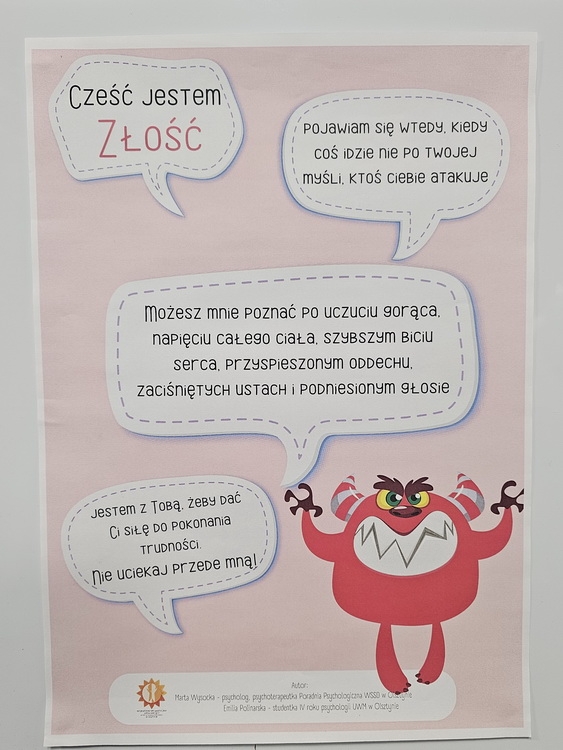 Cześć jestem
Złość
pojawiam się wtedy, kiedy
coś idzie nie po twojej
myśli, ktoś ciebie atakuje
Możesz mnie poznać po uczuciu gorąca,
napięciu całego ciała, szybszym biciu
serca, przyspieszonym oddechu,
zaciśniętych ustach i podniesionym głosie
Jestem z Tobą, żeby dać
Ci siłę do pokonania
trudności.
Nie uciekaj przede mną!
Autor:
Marta Wysocka - psycholog, psychoterapeutka Poradnia Psychologiczna WSSD w Olsztynie
Emilia Polinarska - studentka IV roku psychologii UWM w Olsztynie